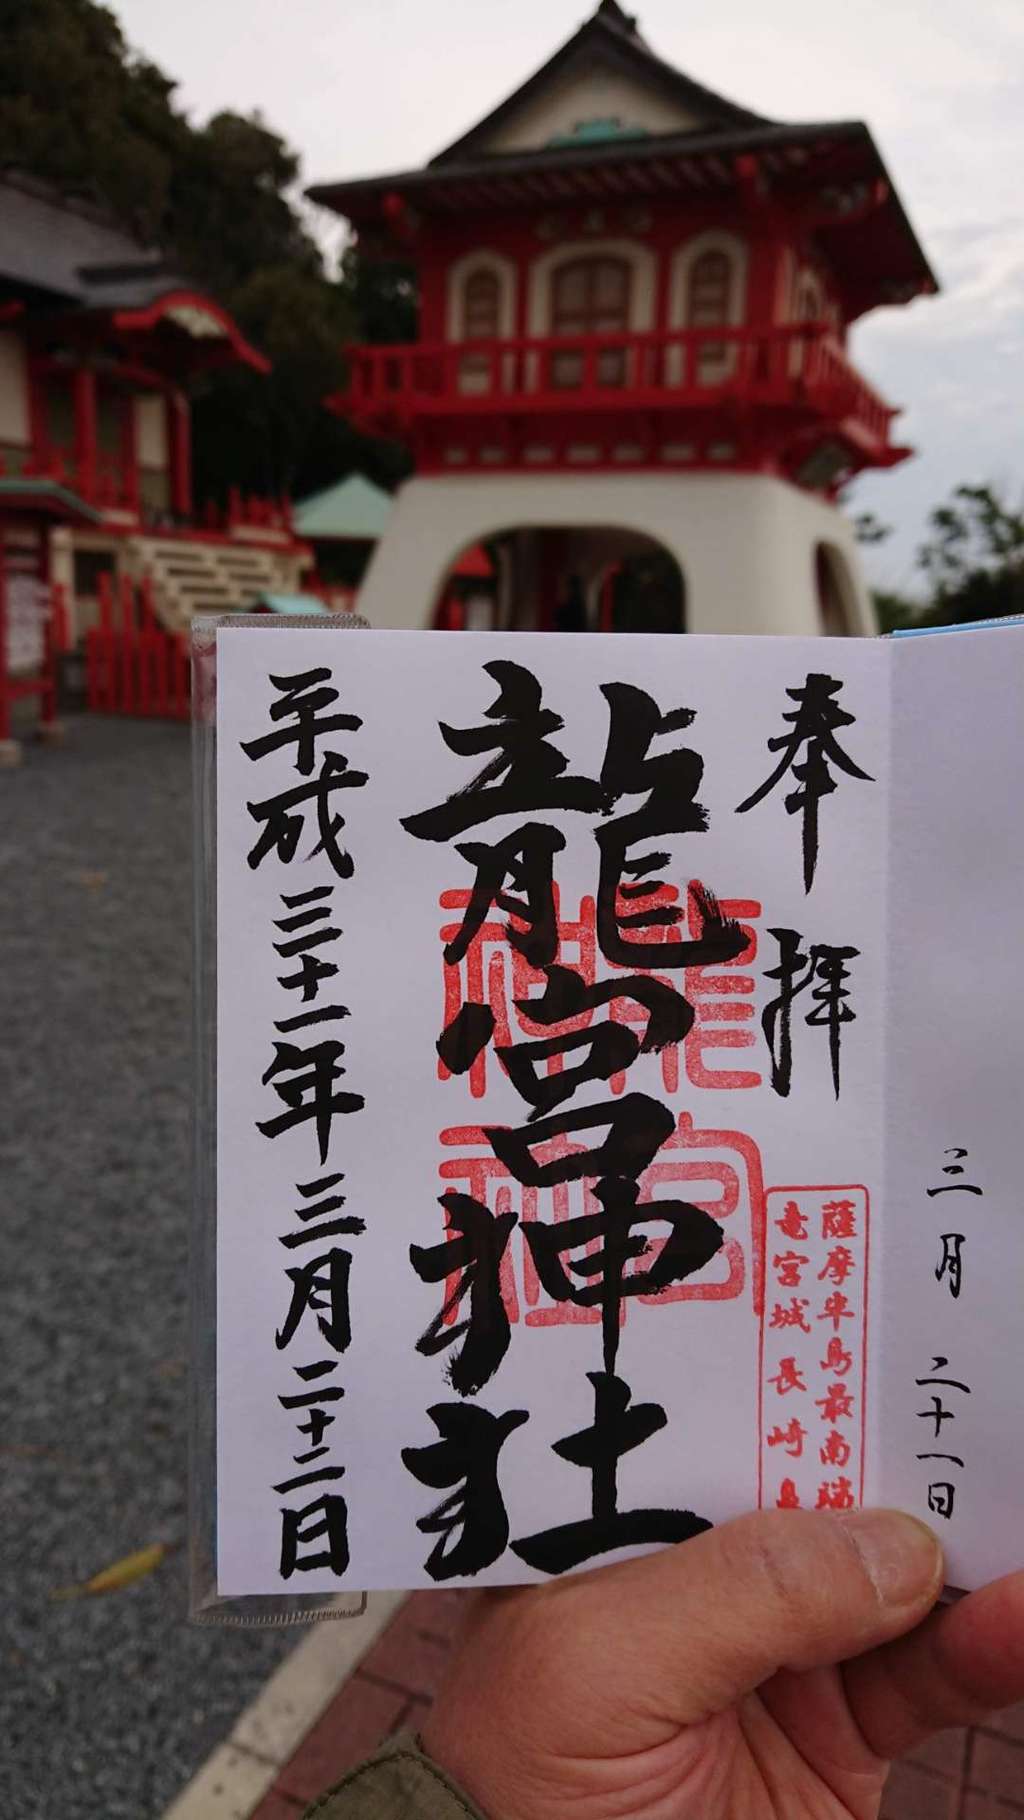 三月 二十一日
奉拝
薩摩半島最南端
竜宮城長崎鼻
龍宮神社
龍宮
神社
平成三十一年三月二十二日